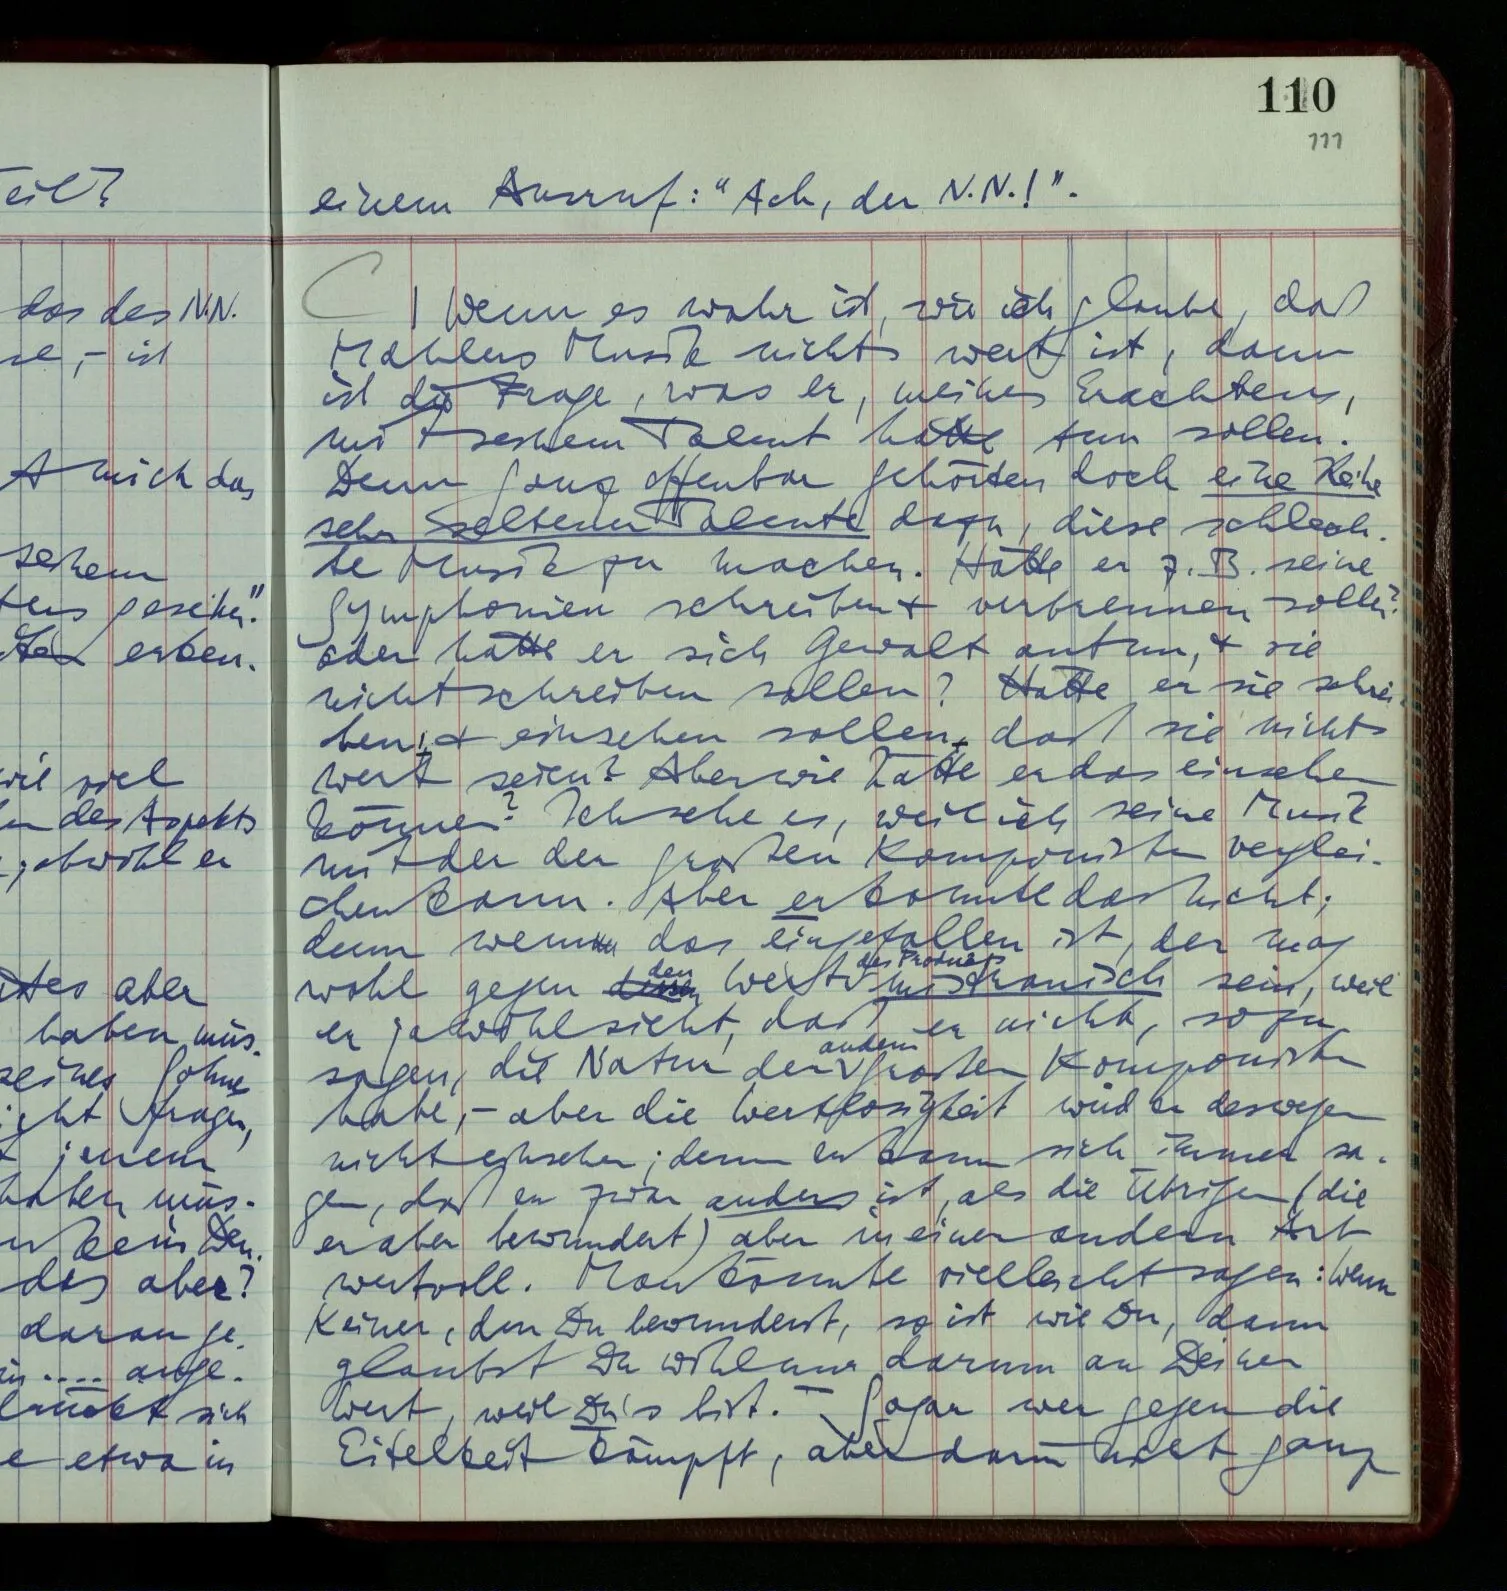 eil?
das des N.N.
se, – ist
mich das
seinem
tens gesehen."
erben.
wie viel
des Aspekts
, obwohl er
aber
haben müs-
seines Sohne
icht fragen,
jenem
haben müs-
kein Den-
das aber?
daran ge-
.... ange-
drückt sich
e etwa in
110
111
einem Ausruf: "Ach, der N.N.!".
| Wenn es wahr ist, wie ich glaube, daß
Mahlers Musik nichts wert ist, dann
ist die Frage, was er, meines Erachtens,
mit seinem Talent hätte tun sollen.
Denn ganz offenbar gehörten doch eine Reihe
sehr seltener Talente dazu, diese schlech-
te Musik zu machen. Hätte er z.B. seine
Symphonien schreiben & verbrennen sollen?
oder hätte er sich Gewalt antun, & sie
nicht schreiben sollen? Hätte er sie schrei-
ben, & einsehen sollen, daß sie nichts
wert seien? Aber wie hätte er das einsehen
können? Ich sehe es, weil ich seine Musik
mit der der großen Komponisten verglei-
chen kann. Aber er konnte das nicht;
denn wem das eingefallen ist, der mag
wohl gegen den Wert des Produkts mißtrauisch sein, weil
er ja wohl sieht, daß er nicht, sozu-
sagen, die Natur der andern großen Komponisten
habe, – aber die Wertlosigkeit wird er deswegen
nicht einsehen; denn er kann sich immer sa-
gen, daß er zwar anders ist, als die Übrigen (die
er aber bewundert) aber in einer andern Art
wertvoll. Man könnte vielleicht sagen: Wenn
Keiner, den Du bewunderst, so ist wie Du, dann
glaubst Du wohl nur darum an Deinen
Wert, weil Du's bist. – Sogar wer gegen die
Eitelkeit kämpft, aber darin nicht ganz